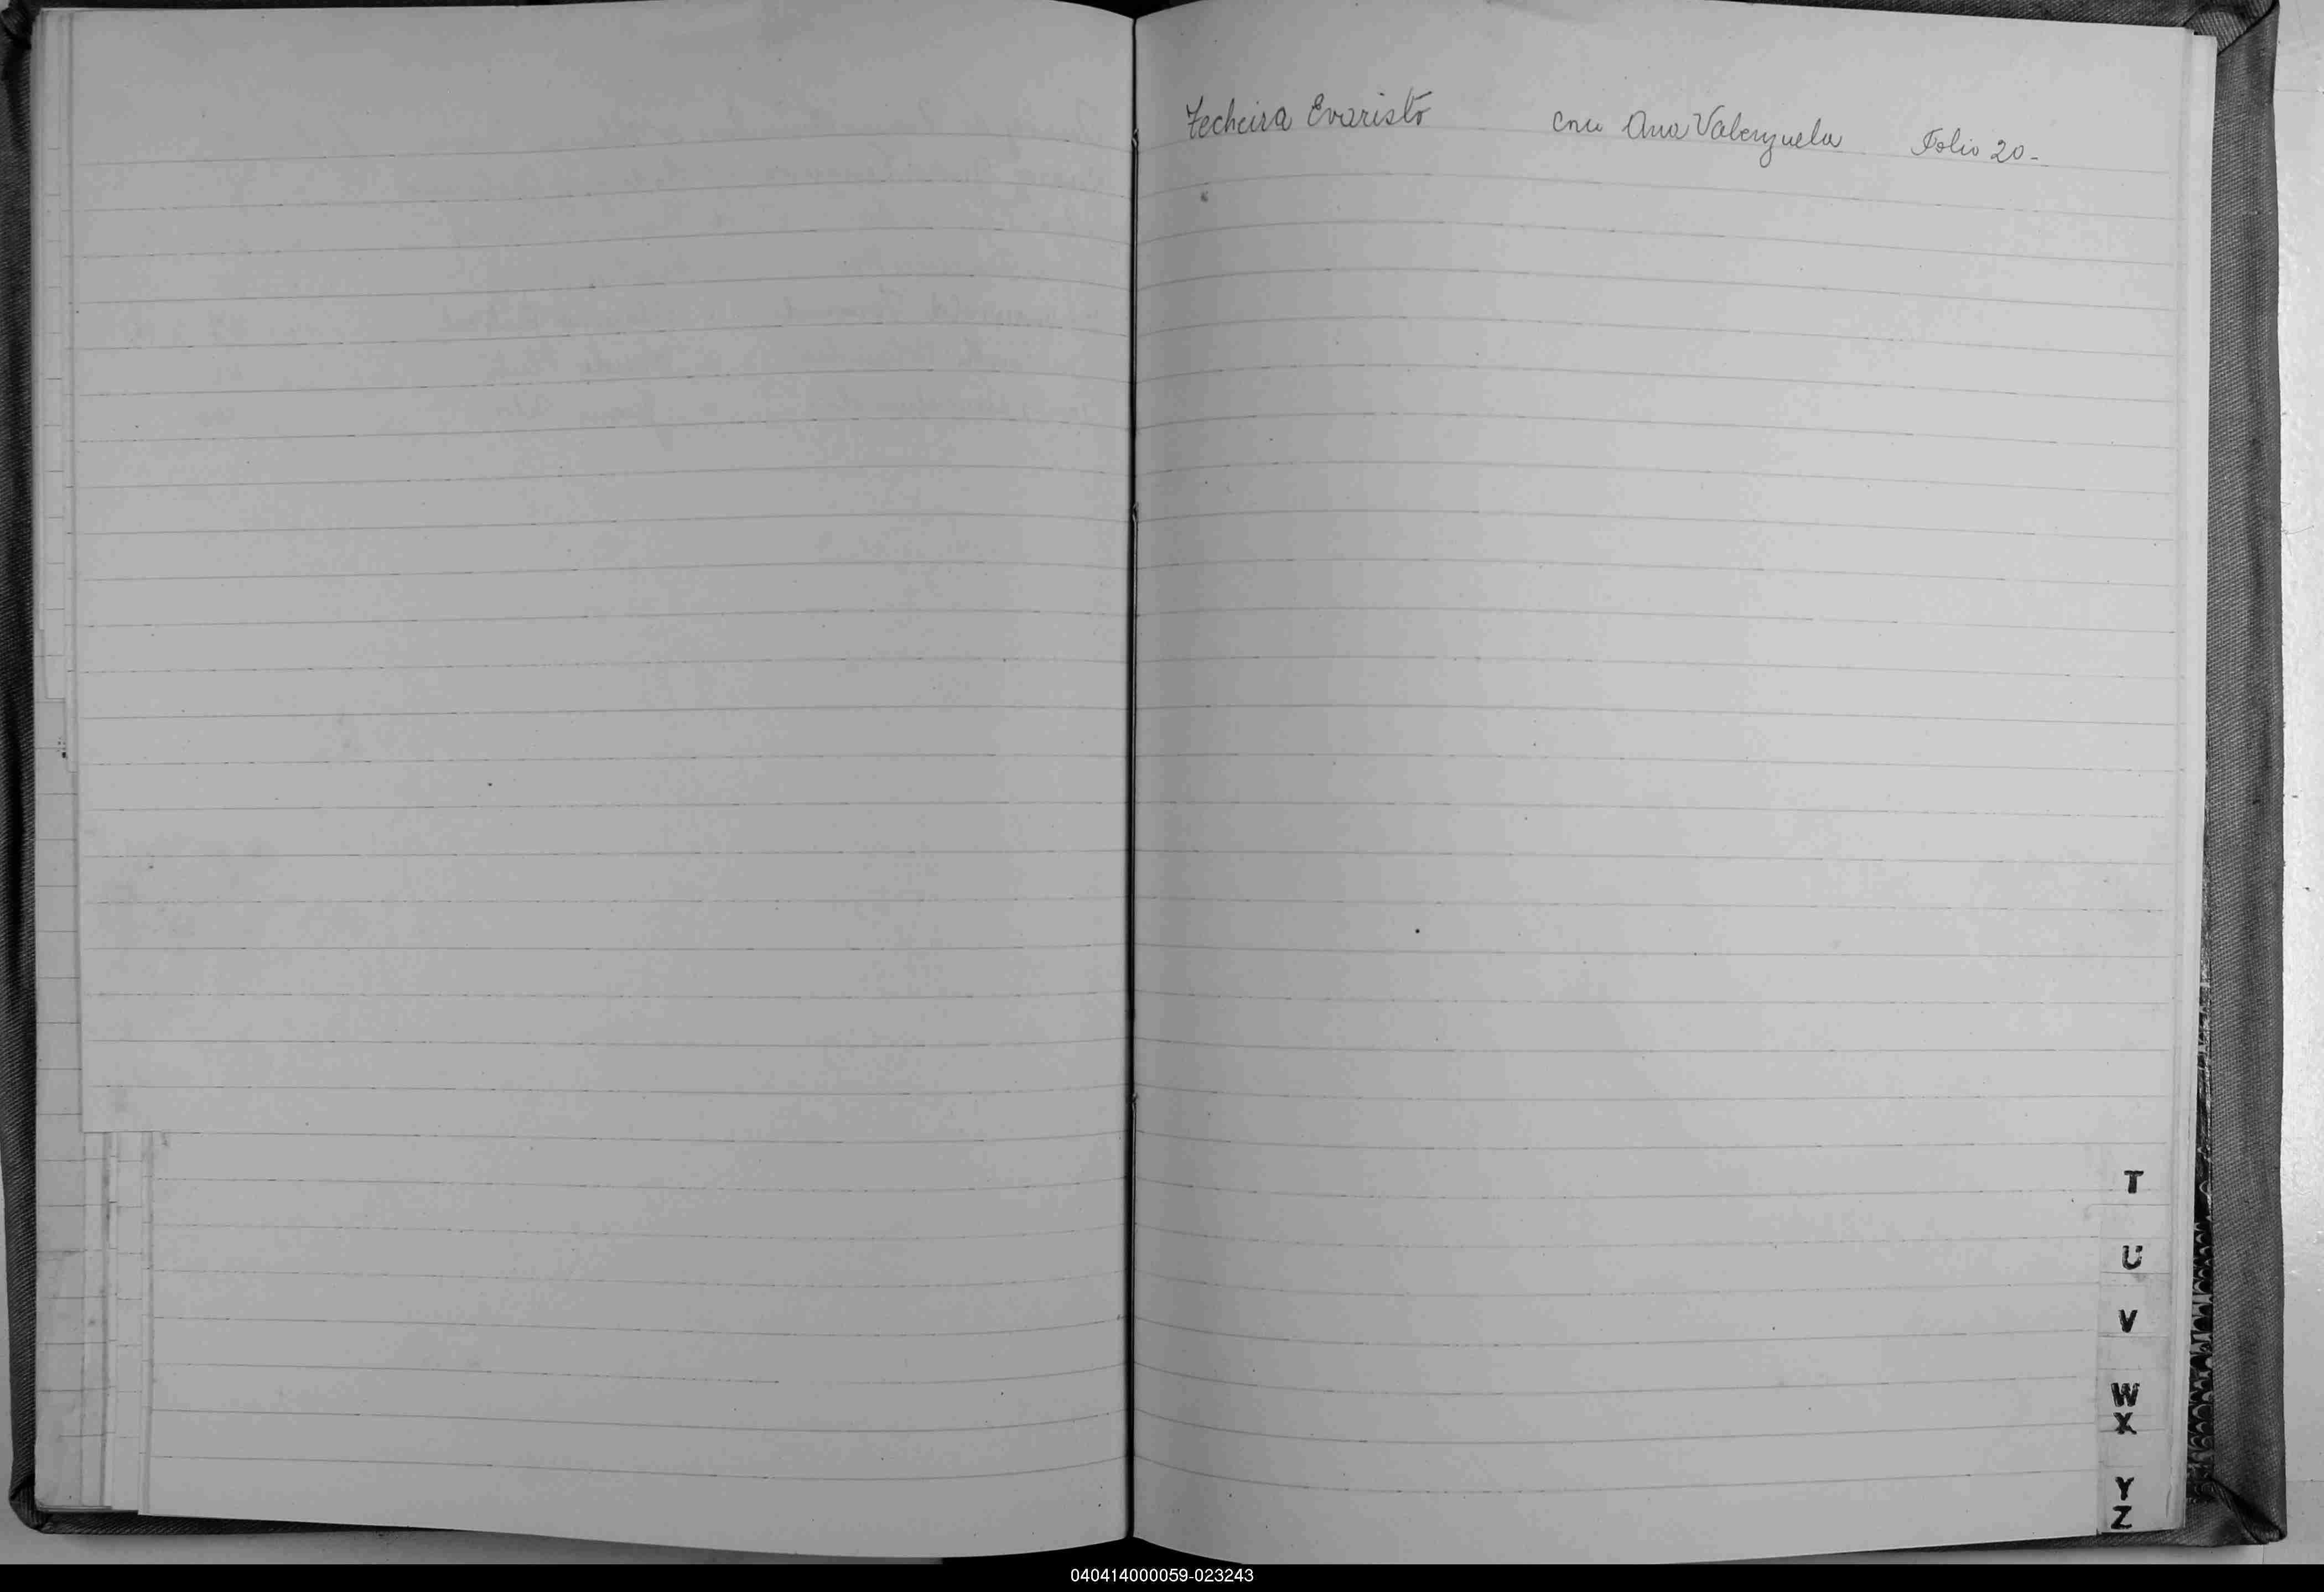 Techeira Evaristo con Ana Valenzuela Folio 20-
T
U
V
W
X
Y
Z
040414000059-023243